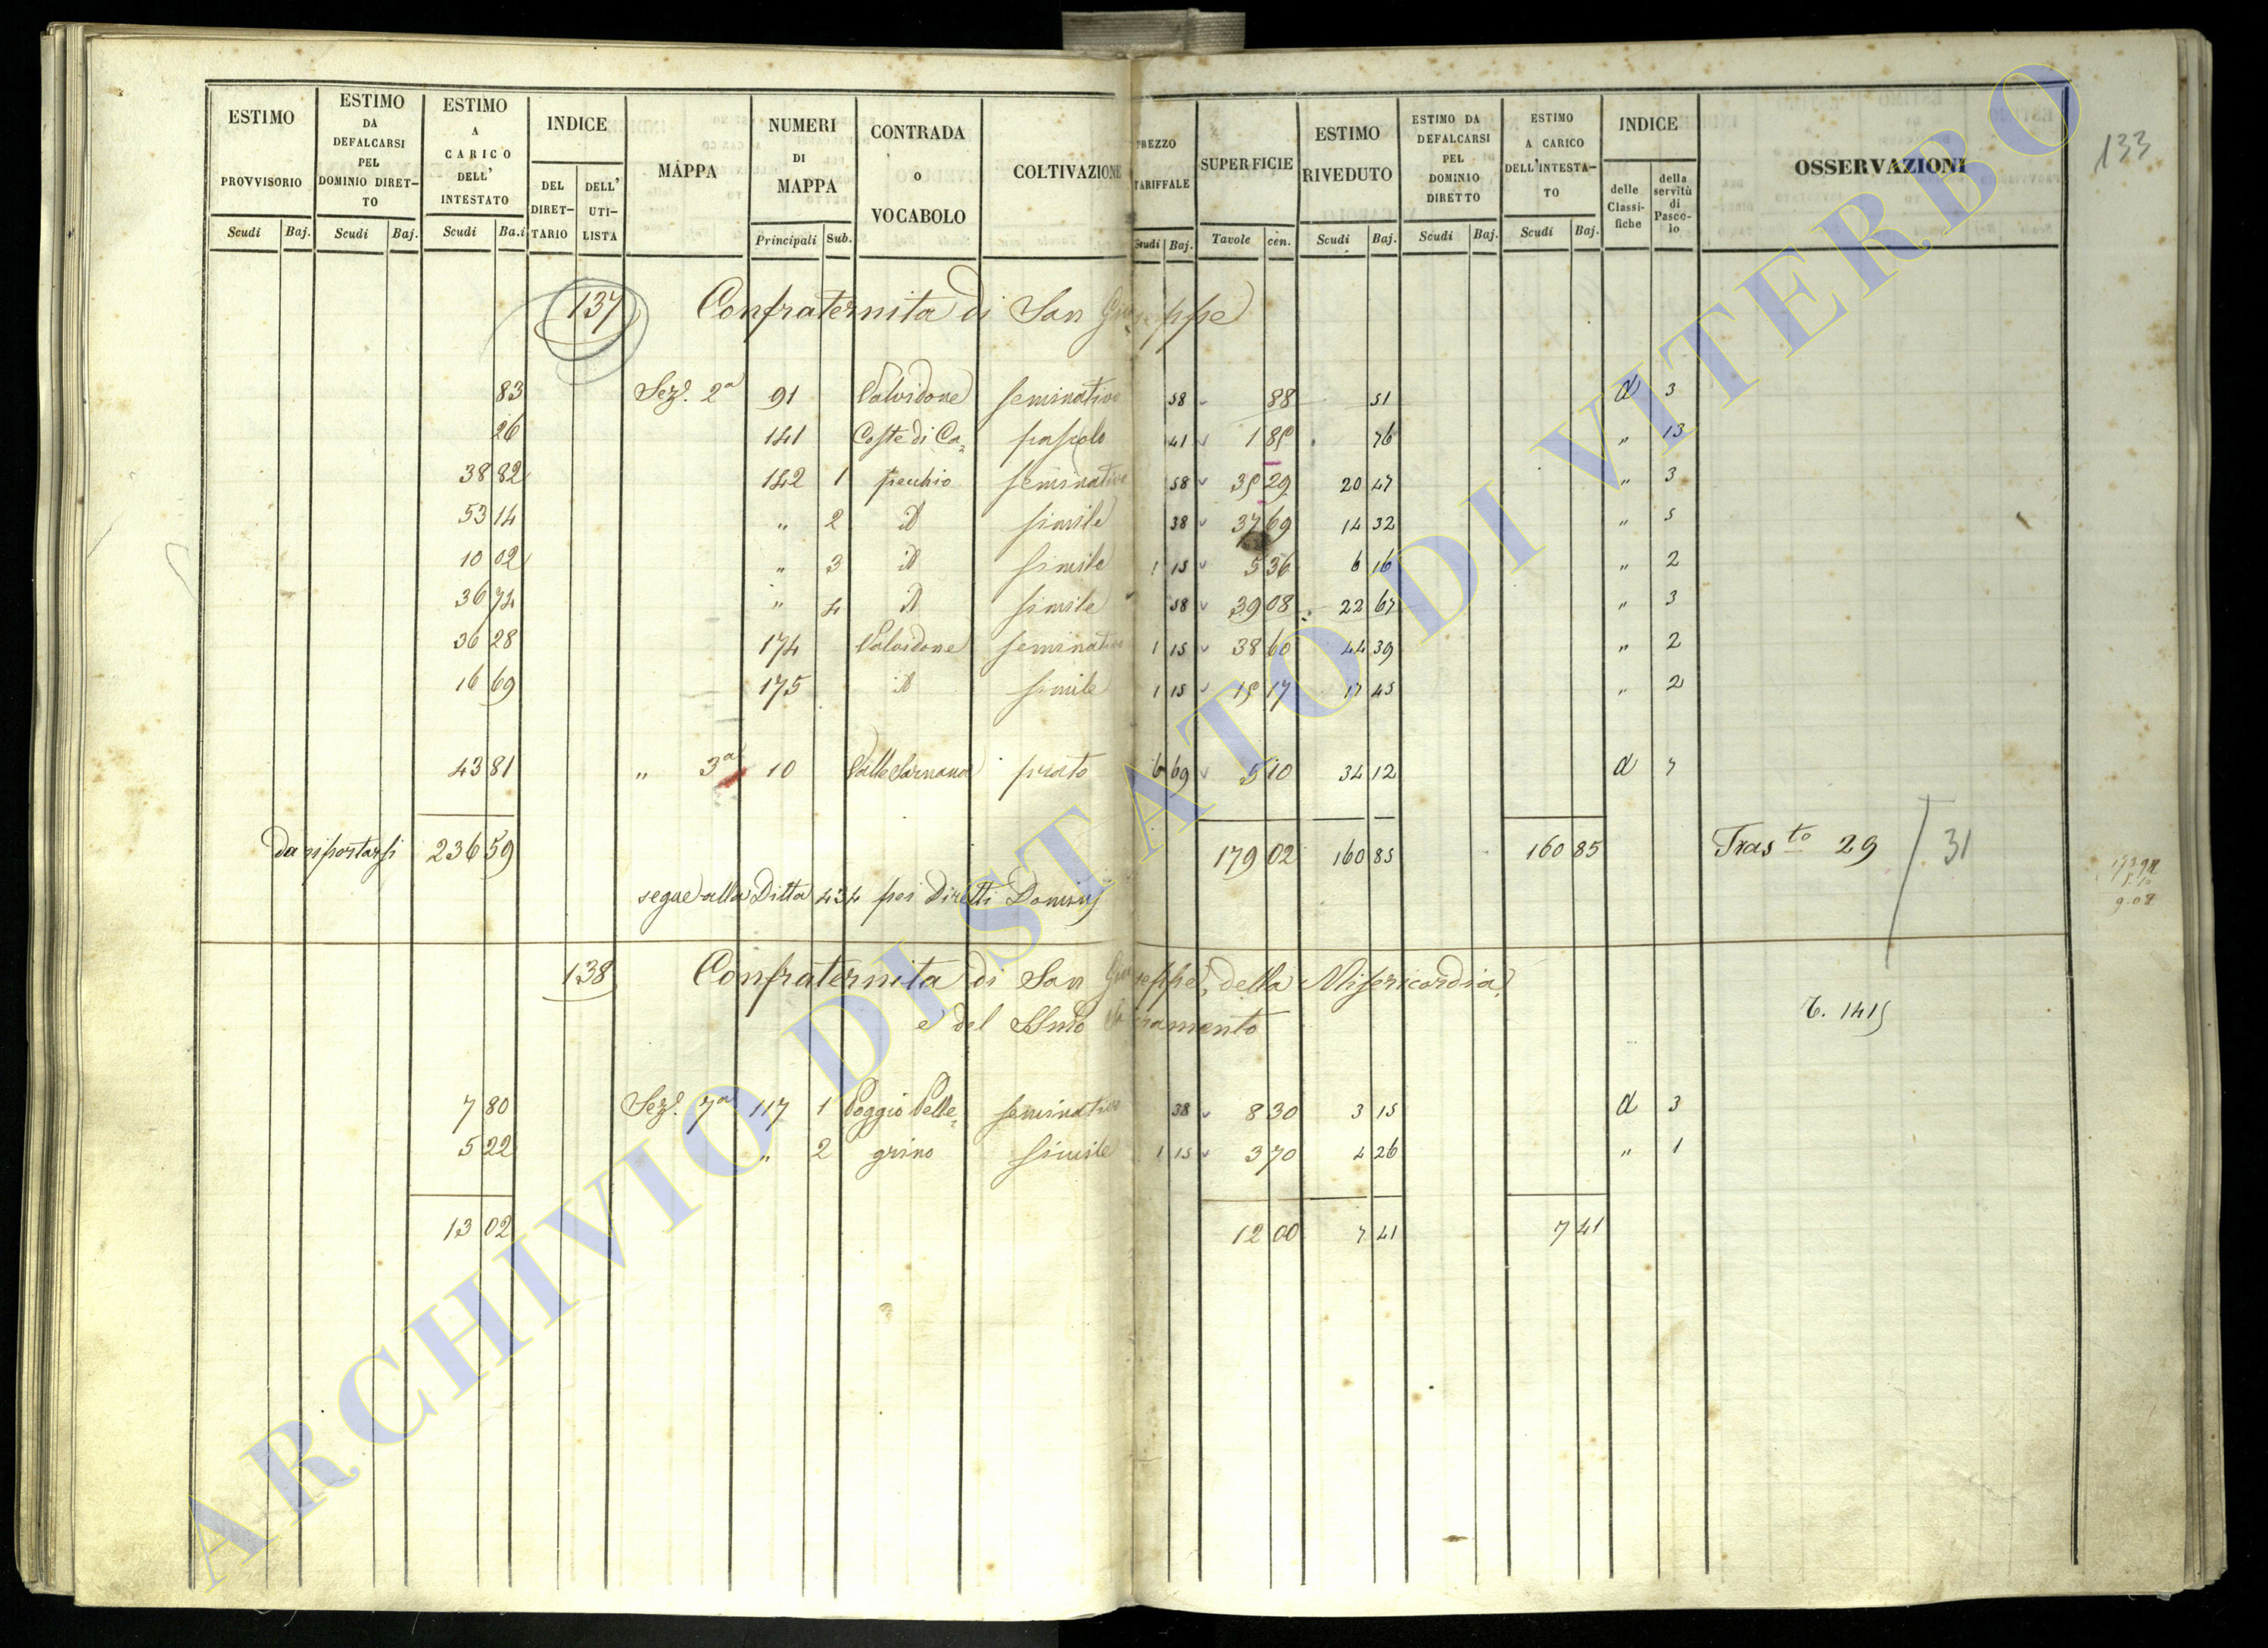 133
ESTIMO PROVVISORIO
ESTIMO DA DEFALCARSI PEL DOMINIO DIRETTO
ESTIMO A CARICO DELL' INTESTATO
INDICE
DEL DIRETTARIO
DELL' UTILISTA
MAPPA
NUMERI DI MAPPA
CONTRADA o VOCABOLO
COLTIVAZIONE
PREZZO TARIFFALE
SUPERFICIE
ESTIMO RIVEDUTO
ESTIMO DA DEFALCARSI PEL DOMINIO DIRETTO
ESTIMO A CARICO DELL'INTESTATO
INDICE
delle Classifiche
della servitù di Pascolo
OSSERVAZIONI
Scudi Baj. Scudi Baj. Scudi Ba.i Principali Sub. Scudi Baj. Tavole cen. Scudi Baj. Scudi Baj. Scudi Baj.
137 Confraternita di San Giuseppe
83 Sez.e 2a 91 Valvidone seminativo 58 88 51 d 3
26 141 Coste di Ca= pascolo 41 1 85 76 " 13
38 82 142 1 pecchio seminativo 58 35 29 20 47 " 3
53 14 " 2 id simile 38 37 69 14 32 " 5
10 02 " 3 id simile 1 15 5 36 6 16 " 2
36 74 " 4 id simile 58 39 08 22 67 " 3
36 28 174 Valvidone seminativo 1 15 38 60 44 39 " 2
16 69 175 id simile 1 15 15 17 17 45 " 2
43 81 " 3a 10 prato 6 69 5 10 34 12 d 7
da riportarsi 236 59 179 02 160 85 160 85 Tras.to 29 / 31
segue alla Ditta 434 pei Diretti Dominj
138 Confraternita di San Giuseppe, della Misericordia,
e del SSmo Sacramento
T. 1415
7 80 Sez.e 7a 117 1 Poggio Pelle= seminativo 38 8 30 3 15 d 3
5 22 " 2 grino simile 1 15 3 70 4 26 " 1
13 02 12 00 7 41 7 41
ARCHIVIO DI STATO DI VITERBO